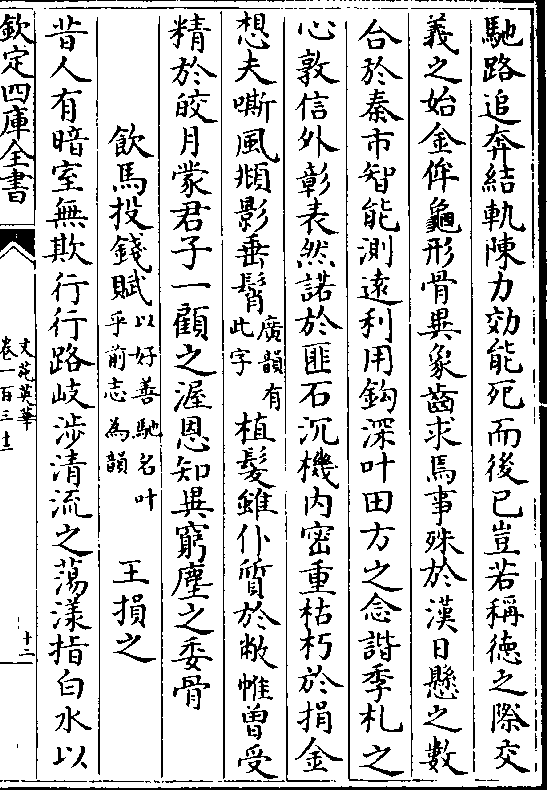 馳路追奔結軌陳力効能死而後已豈若稱德之際交
義之始金侔龜形骨異象齒求馬事殊於漢日懸之數
合於秦市智能測遠利用鈎深叶田方之念諧季札之
心敦信外彰表然諾於匪石沉機内密重枯朽於捐金
想夫嘶風頽影垂鬋廣韻有此字植髮雖仆質於敝帷曽受
精於皎月蒙君子一顧之渥恩知異窮塵之委骨
飲馬投錢賦以好善馳名叶乎前志為韻 王損之
昔人有暗室無欺行行路岐涉清流之蕩漾指白水以
欽定四庫全書
文苑英華
卷一百三十三
十二